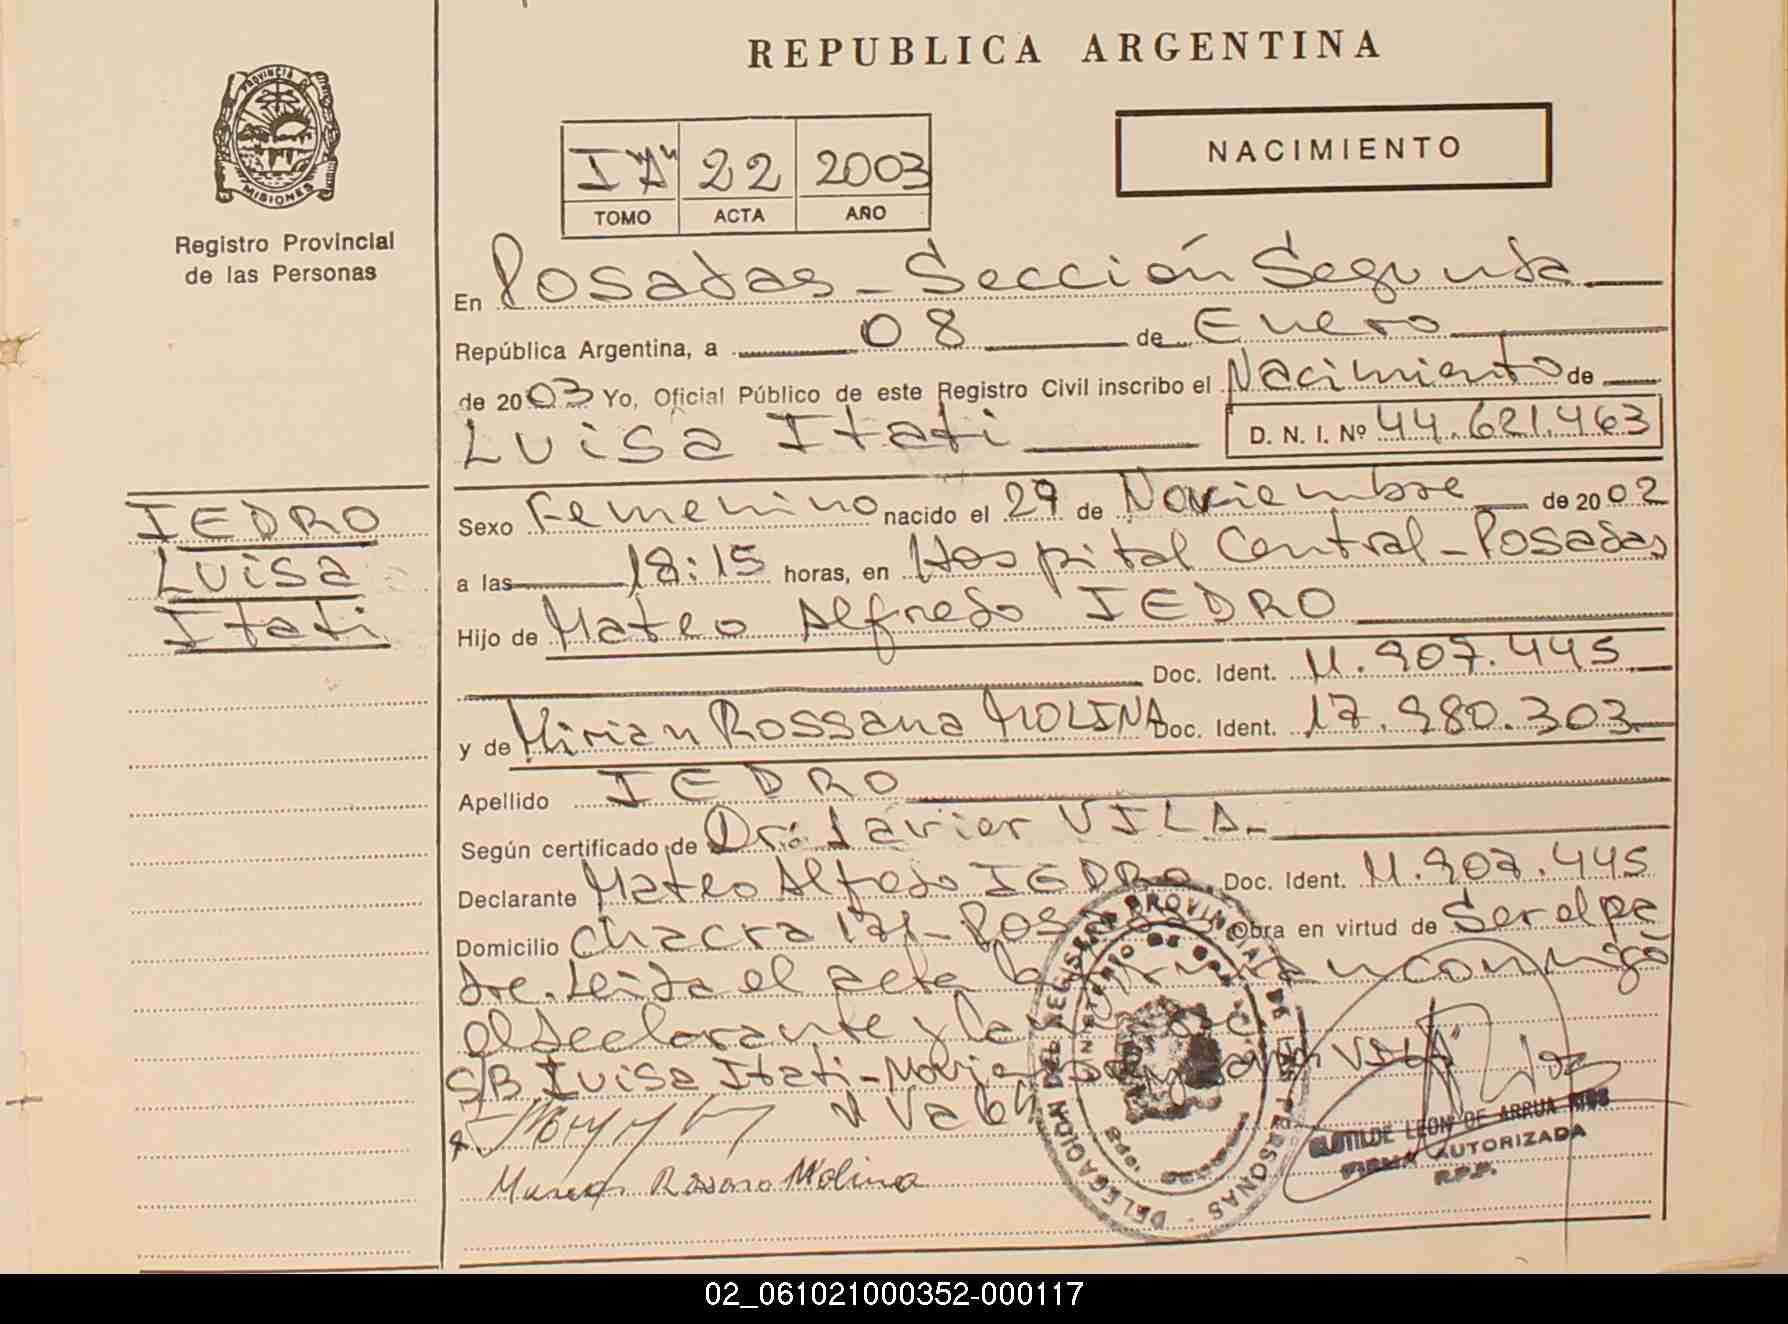 REPUBLICA ARGENTINA
PROVINCIA DE MISIONES
Registro Provincial
de las Personas
I "A" 22 2003
TOMO ACTA AÑO
NACIMIENTO
En Posadas - Sección Segunda
República Argentina, a 08 de Enero
de 2003 Yo, Oficial Público de este Registro Civil inscribo el Nacimiento de
Luisa Itati D. N. I. Nº 44.621.463
IEDRO
Luisa
Itati
Sexo Femenino nacido el 29 de Noviembre de 2002
a las 18:15 horas, en Hospital Central - Posadas
Hijo de Mateo Alfredo IEDRO
Doc. Ident. 11.907.445
y de Mirian Rossana MOLINA Doc. Ident. 17.980.303
Apellido IEDRO
Según certificado de Dr. Javier VILA -
Declarante Mateo Alfredo IEDRO Doc. Ident. 11.907.445
Domicilio Chacra 171 - Pos Obra en virtud de Ser el pa
dre. Leida el acta la conmigo
el declarante y la
S/B Luisa Itati - Novie VILA
Vale
Molina
DELEGACION DEL REGISTRO PROVINCIAL DE LAS PERSONAS
MINISTERIO DE
CLOTILDE LEON DE ARRUA
FIRMA AUTORIZADA
R.P.P.
02_061021000352-000117